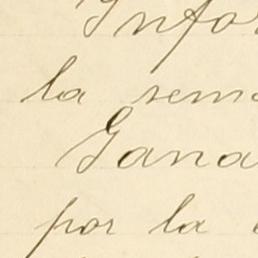 Infor
la sema
Gana
por la